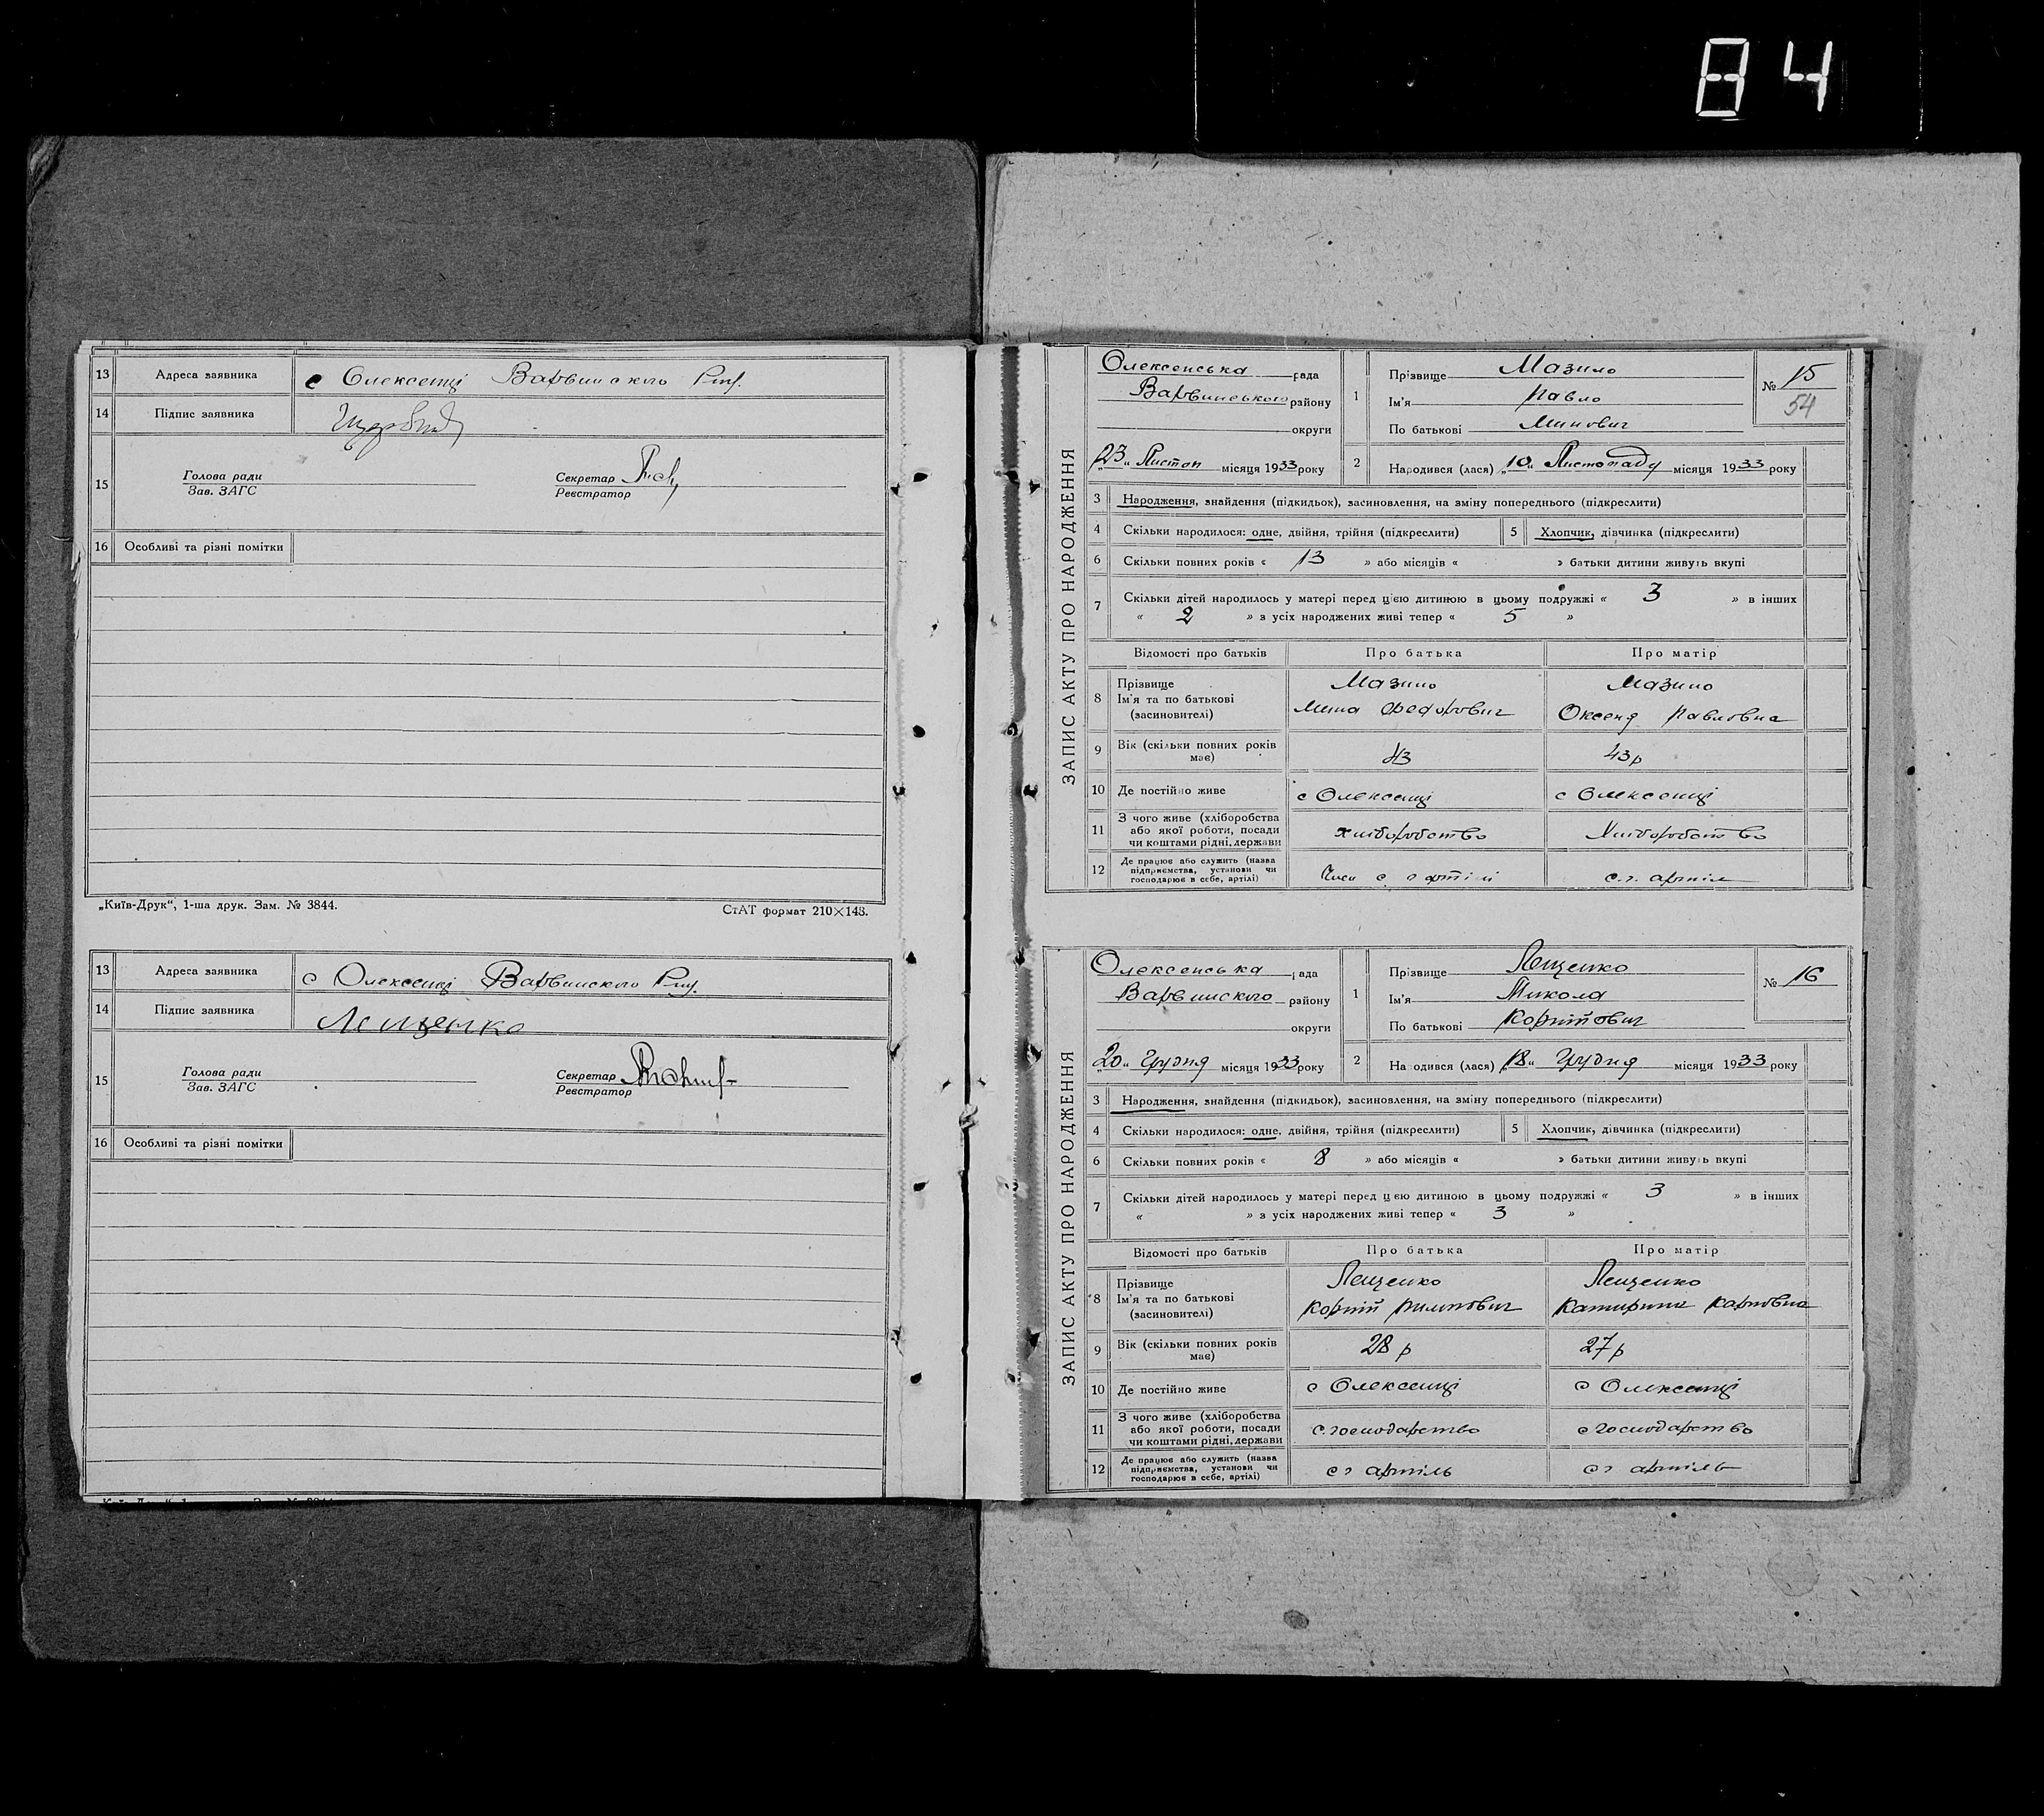 84
13 Адреса заявника с Олексенці Варвинского
14 Підпис заявника
15 Голова ради Секретар
Зав. ЗАГС Реєстратор
16 Особливі та різні помітки
„Київ-Друк“, 1-ша друк. Зам. № 3844. СтАТ формат 210×148.
13 Адреса заявника с Олексенці Варвинского
14 Підпис заявника Лещенко
15 Голова ради Секретар
Зав. ЗАГС Реєстратор
16 Особливі та різні помітки
ЗАПИС АКТУ ПРО НАРОДЖЕННЯ
Олексенська рада
Варвинського району
округи
„23“ Листоп місяця 1933 року
1 Прізвище Мазило
Ім'я Павло
По батькові Минович
№ 15
54
2 Народився (лася) „10“ Листопаду місяця 1933 року
3 Народження, знайдення (підкидьок), засиновлення, на зміну попереднього (підкреслити)
4 Скільки народилося: одне, двійня, трійня (підкреслити) 5 Хлопчик, дівчинка (підкреслити)
6 Скільки повних років « 13 » або місяців « » батьки дитини живуть вкупі
7 Скільки дітей народилось у матері перед цією дитиною в цьому подружжі « 3 » в інших
« 2 » з усіх народжених живі тепер « 5 »
Відомості про батьків Про батька Про матір
8 Прізвище Мазило Мазило
Ім'я та по батькові Мина Федорович Оксеня Павловна
(засиновителі)
9 Вік (скільки повних років має) 43 43р
10 Де постійно живе с Олексенці с Олексенці
11 З чого живе (хліборобства або якої роботи, посади чи коштами рідні, держави хліборобство Хліборобство
12 Де працює або служить (назва підприємства, установи чи господарює в себе, артілі) с г артілі с.г. артіль
ЗАПИС АКТУ ПРО НАРОДЖЕННЯ
Олексенська рада
Варвинского району
округи
„20“ Грудня місяця 1933 року
1 Прізвище Лещенко
Ім'я Микола
По батькові Корнійович
№ 16
2 На одився (лася) „18“ Грудня місяця 1933 року
3 Народження, знайдення (підкидьок), засиновлення, на зміну попереднього (підкреслити)
4 Скільки народилося: одне, двійня, трійня (підкреслити) 5 Хлопчик, дівчинка (підкреслити)
6 Скільки повних років « 8 » або місяців « » батьки дитини живуть вкупі
7 Скільки дітей народилось у матері перед цією дитиною в цьому подружжі « 3 » в інших
« » з усіх народжених живі тепер « 3 »
Відомості про батьків Про батька Про матір
8 Прізвище Лещенко Лещенко
Ім'я та по батькові Корній Пилипович Катирина Карповна
(засиновителі)
9 Вік (скільки повних років має) 28 р 27 р
10 Де постійно живе с Олексенці с Олексенці
11 З чого живе (хліборобства або якої роботи, посади чи коштами рідні, держави с.господарство с господарство
12 Де працює або служить (назва підприємства, установи чи господарює в себе, артілі) с г артіль с г артіль